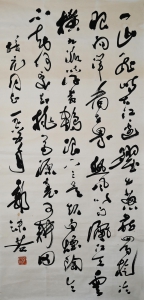 一山飞峙大江边跃上葱茏四百旋冷
眼向洋看世界热风吹雨洒江天云
横九派浮黄鹤浪下三吴起白烟陶令
不知何处去桃花源里可耕田
同志 一九六 年 郭沫若